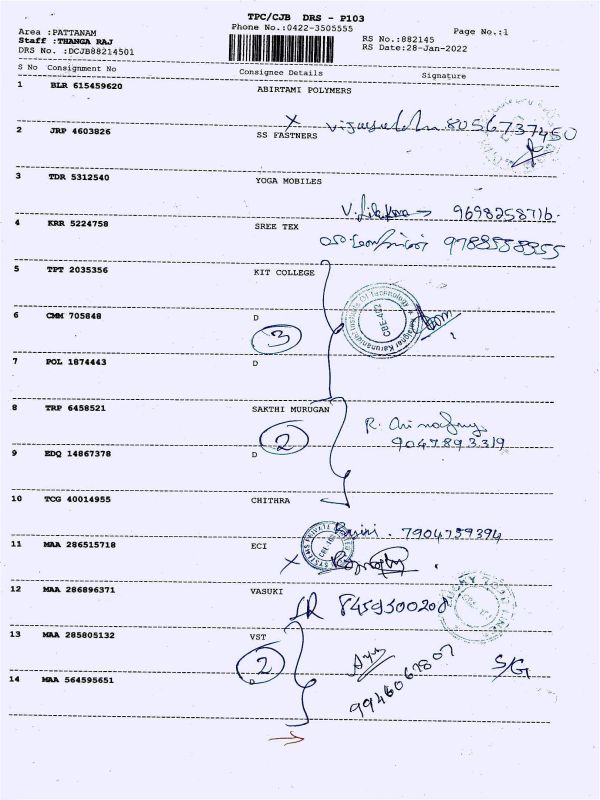 TPC/CJB DRS - P103
Phone No.:0422-3505555
Area :PATTANAM
RS No.:882145
Page No.:1
Staff :THANGA RAJ
RS Date:28-Jan-2022
DRS No. :DCJB88214501
S No Consignment No Consignee Details Signature
1 BLR 615459620 ABIRTAMI POLYMERS
X 8056737450
2 JRP 4603826 SS FASTNERS
3 TDR 5312540 YOGA MOBILES
9698258716.
4 KRR 5224758 SREE TEX
9788558355
5 TPT 2035356 KIT COLLEGE
6 CMM 705848 D
3
7 POL 1874443 D
8 TRP 6458521 SAKTHI MURUGAN
2
9047893319
9 EDQ 14867378 D
10 TCG 40014955 CHITHRA
7904759394
11 MAA 286515718 ECI
X
12 MAA 286896371 VASUKI
8459300208
13 MAA 285805132 VST
2
9946067807
S/G
14 MAA 564595651 D